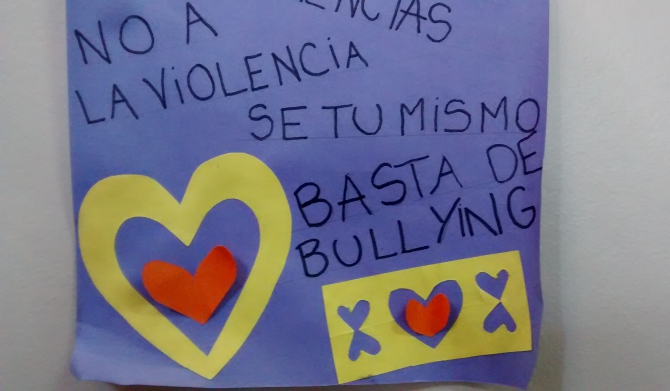 NO A
LA VIOLENCIA
SE TU MISMO
BASTA DE
BULLYING